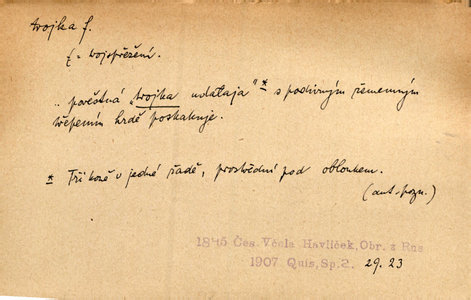 trojka f.
(= trojspřežení.
.. pověstná „trojka udalaja"* s podivným řemenným
třepením hrdě poskakuje.
* Tři koně v jedné řadě, prostřední pod obloukem.
(aut. pozn.)
1845 Čes. Včela Havlíček, Obr. z Rus
1907 Quis, Sp. 2. 29. 23